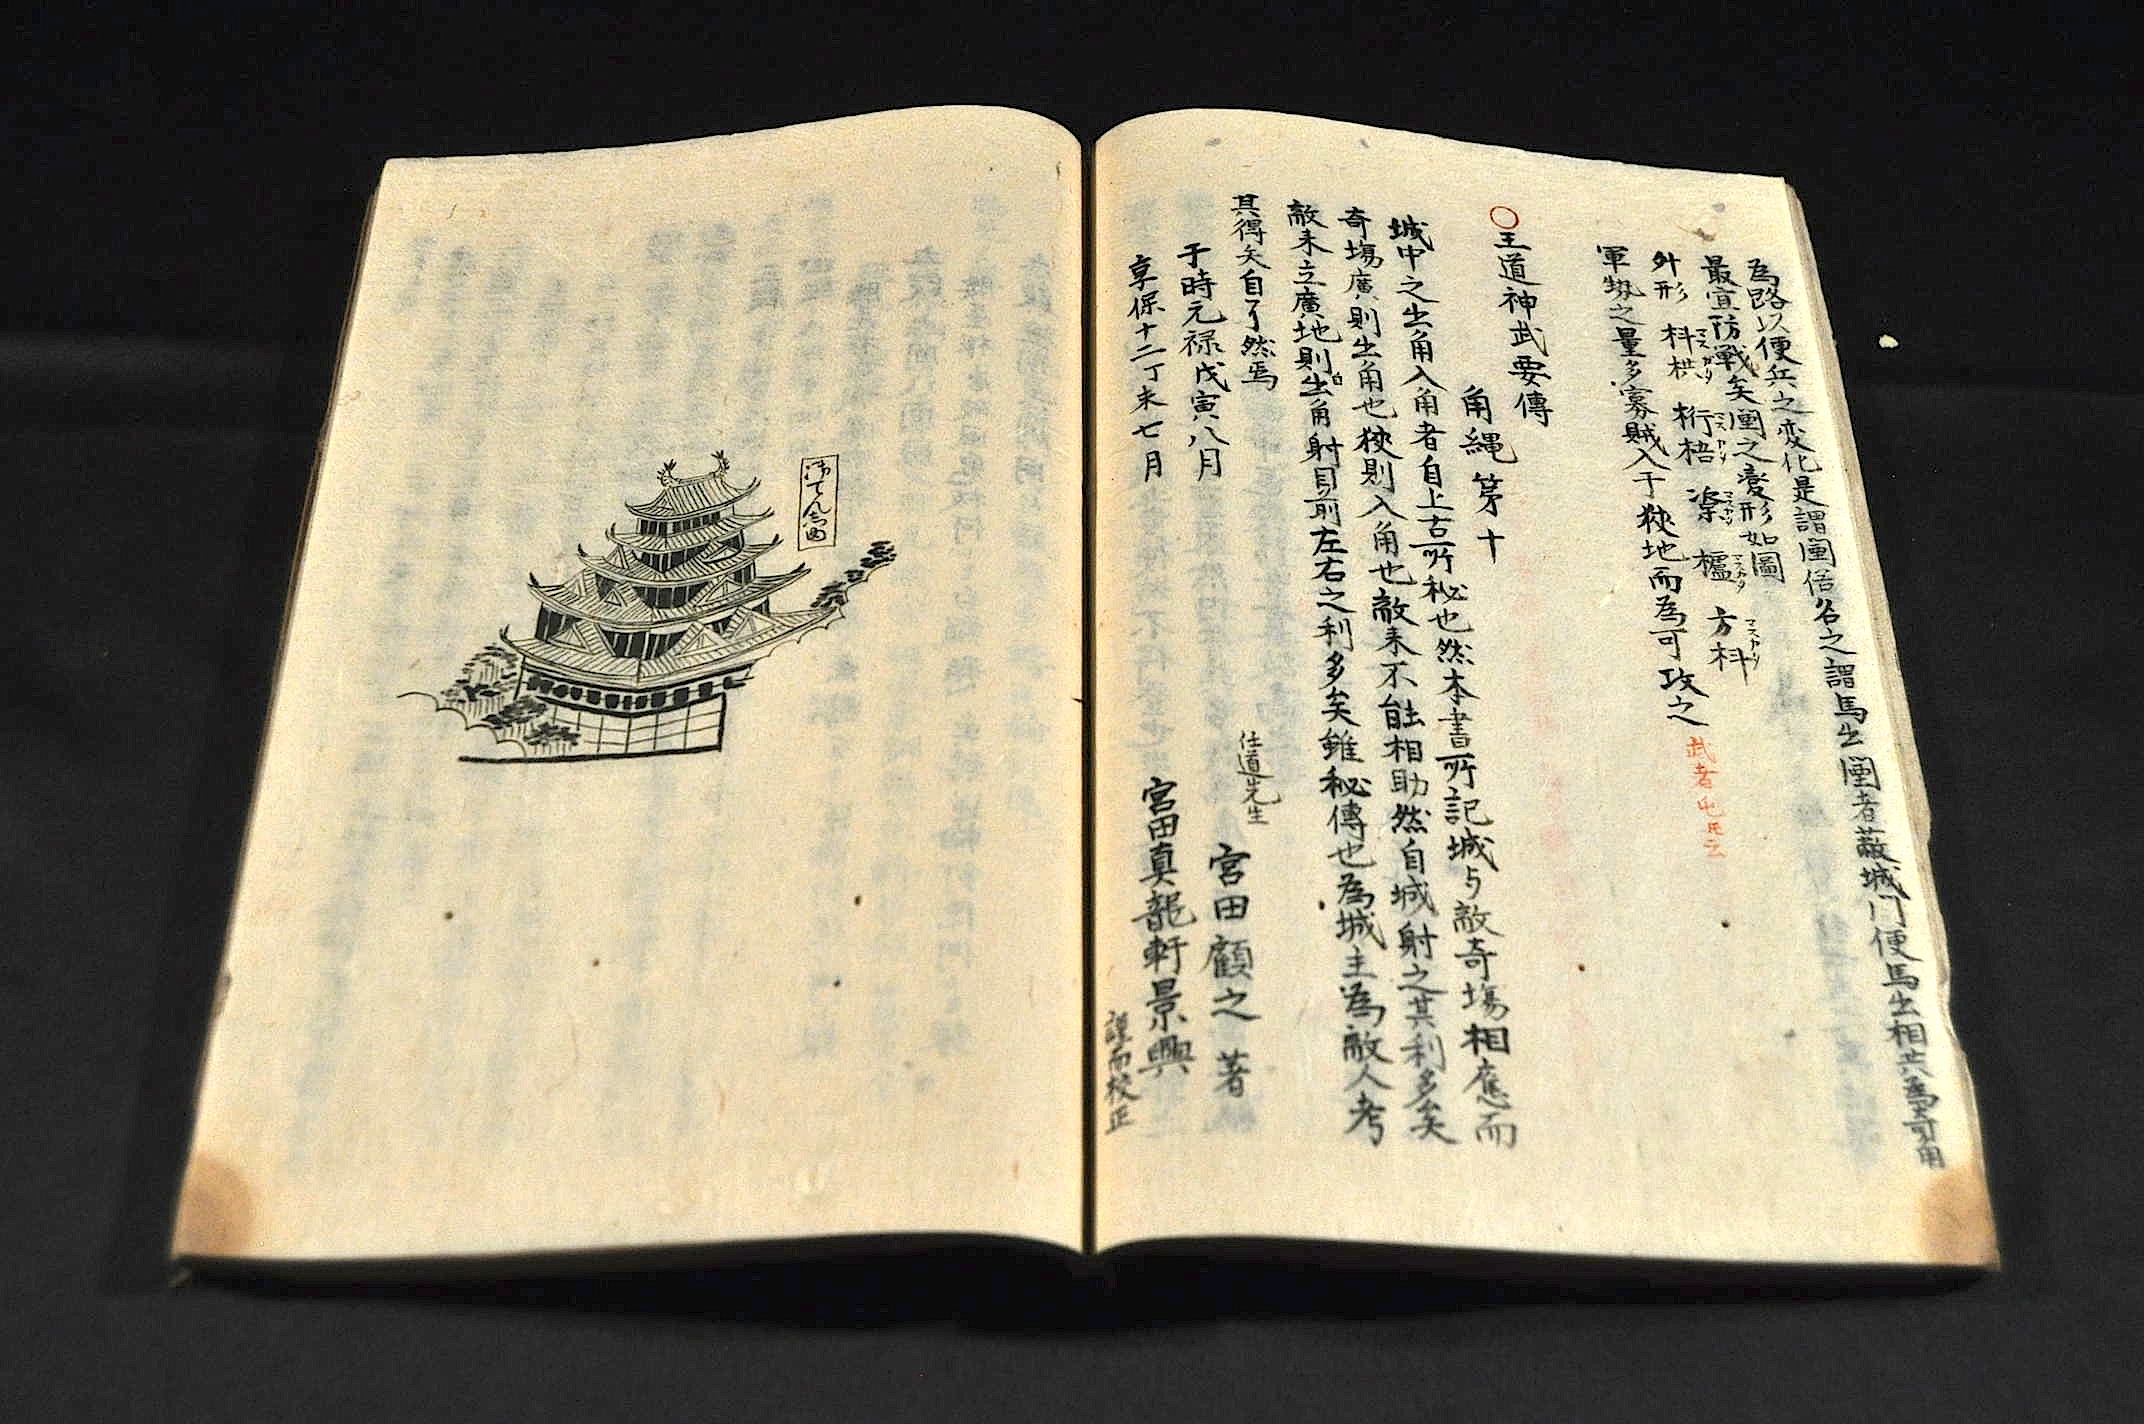 為路以便兵之変化是謂圍俗名之謂馬出圍者蔽城門便馬出相共為可用
最宜防戰矣圍之変形如圖
外形 枓栱 桁梧 楶 櫨 方枓
マスガタ マスガタ マスガタ マスガタ マスガタ
軍勢之量多寡賊入于狹地而為可攻之
武者屯
○王道神武要傳
角縄第十
城中之出角入角者自上古所秘也然本書所記城与敵奇場相應而
奇場廣則出角也狹則入角也敵来不能相助然自城射之其利多矣
敵来立廣地則出角射目前左右之利多矣雖秘傳也為城主為敵人考
其得矢自了然焉
仕道先生
于時元禄戊寅八月 宮田顧之 著
享保十二丁未七月 宮田真龍軒景興
謹而校正
御てん